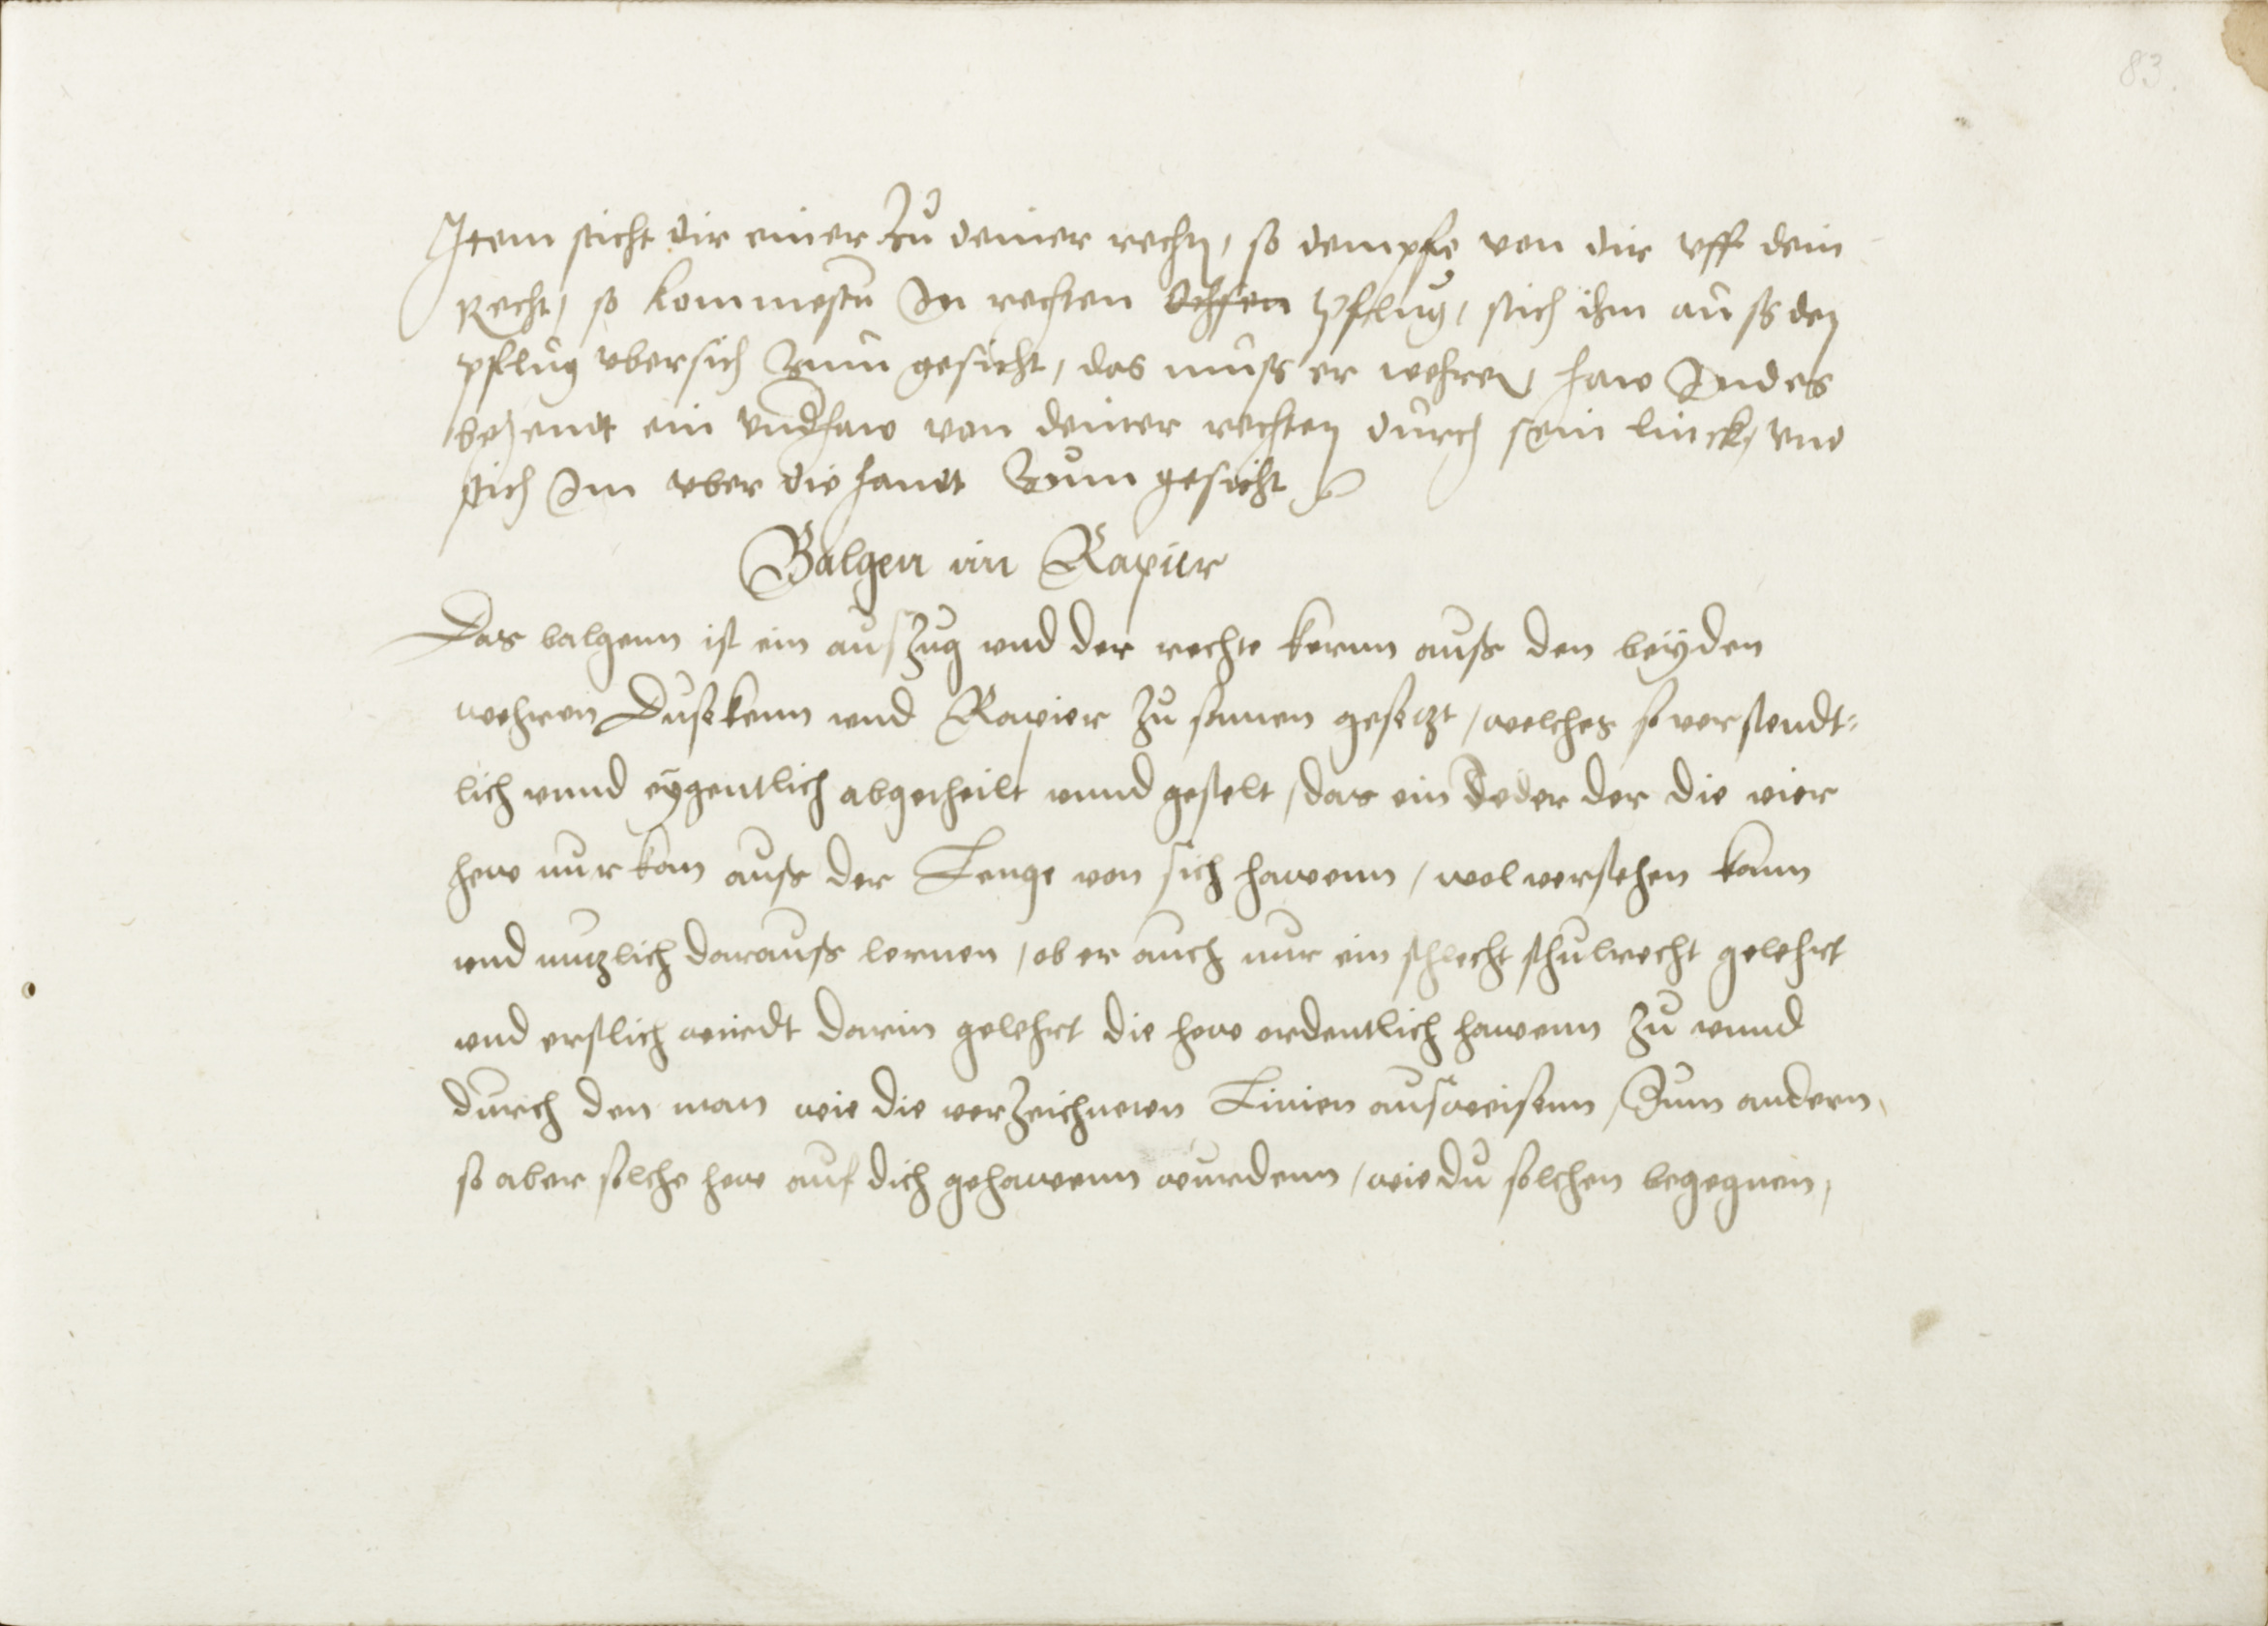 83.
Item sticht dir einer Zu deiner rechtn, so dempffe von dir vff dein
Recht, so kommestu In rechten Ochsen pflug, stich ihm auß den
pflug vbersich Zum gesicht, das muß er wehren, haw Indes
behendt ein Vndhaw von deiner rechten durch sein linck, vnd
stich Im vber die handt Zum gesicht
Balgen im Rapier
Das balgenn ist ein auszug vnd der rechte kernn auß den beÿden
wehren Dusekenn vnd Rapier zu samen gesetzt, welches so verstendt-
lich vnnd eÿgentlich abgetheilt vnnd gestelt, das ein Jeder der die vier
hew nur kan auß der Lenge von sich hawenn, wol verstehen kann
vnd nutzlich darauß lernen, ob er auch nur ein schlecht schulrecht gelehrt
vnd erstlich wirdt darin gelehrt die hew ordentlich hawenn zu vnnd
durch den man wie die verzeichneten Linien ausweisenn, Zum andern,
so aber solche hew auf dich gehawenn wurdenn, wie du solchen begegnen,